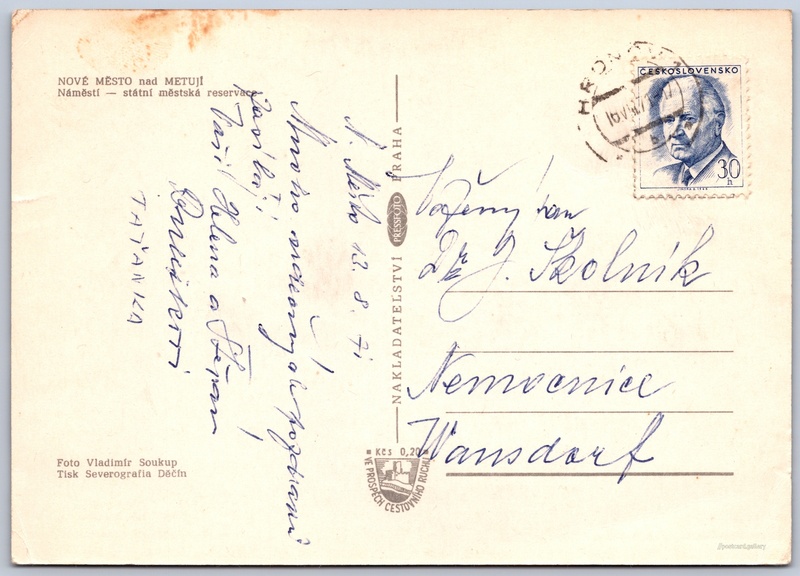 NOVÉ MĚSTO nad METUJÍ
Náměstí — státní městská reservace
N. Město 13. 8. 71
Mnoho srdečných pozdravů
Zasílají
Vaši Helena a Štěpán
TAŤÁNKA
Foto Vladimír Soukup
Tisk Severografia Děčín
NAKLADATELSTVÍ PRESSFOTO PRAHA
Kčs 0,20
VE PROSPĚCH CESTOVNÍHO RUCHU
HRONOV
ČESKOSLOVENSKO
30
h
Vážený pan
J. Školník
Nemocnice
Warnsdorf
postcard.gallery